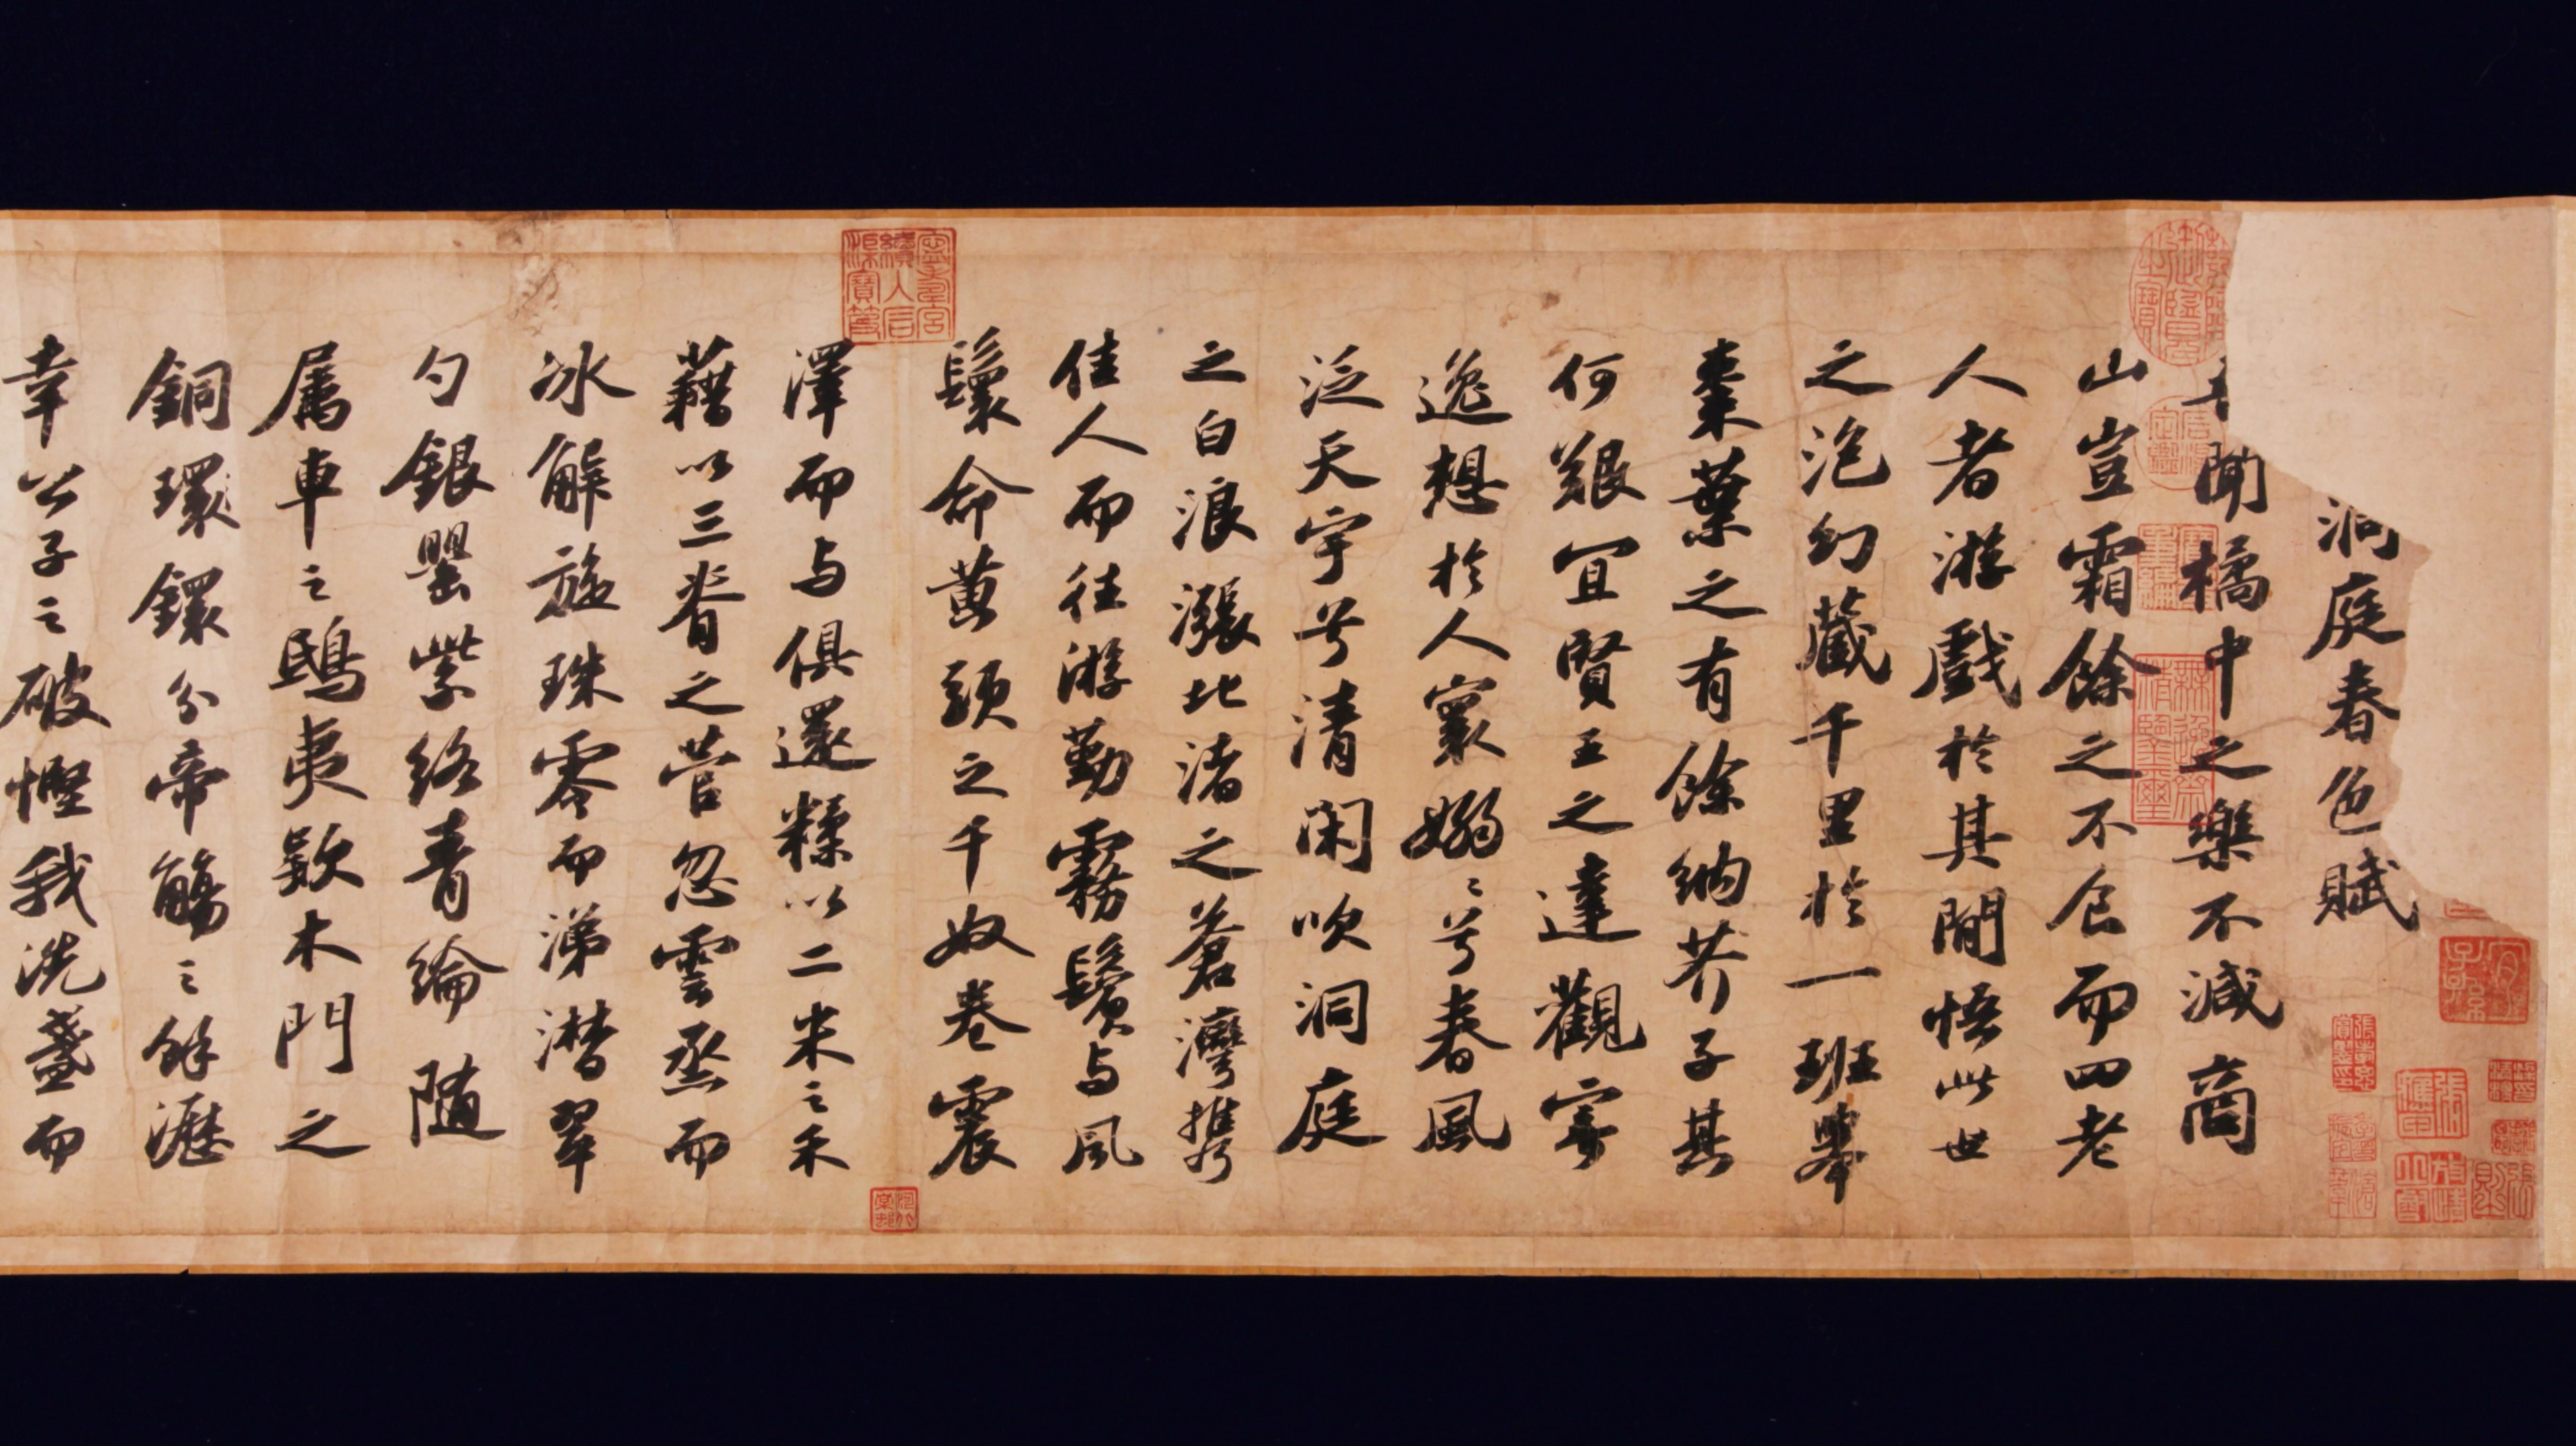 洞庭春色賦
吾聞橘中之樂不減商
山豈霜餘之不食而四老
人者游戲於其間悟此世
之泡幻藏千里於一班舉
棗葉之有餘納芥子其
何艱宜賢王之達觀寄
逸想於人寰嫋〻兮春風
泛天宇兮清閑吹洞庭
之白浪漲北渚之蒼灣携
佳人而往游勤霧鬢与風
鬟命黃頭之千奴卷震
澤而与俱還糅以二米之禾
藉以三脊之菅忽雲烝而
冰解旋珠零而涕潸翠
勺銀罌紫絡青綸隨
属車之鴟夷款木門之
銅環鐶分帝觴之餘瀝
幸公子之破慳我洗盞而